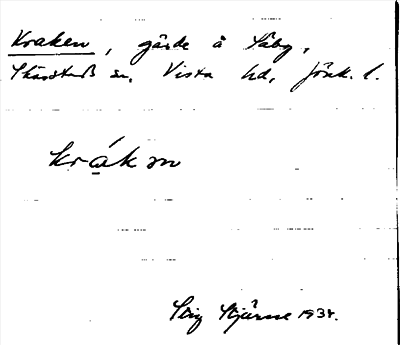 Kraken, gärde å Säby,
Skärstads sn, Vista hd, Jönk. l.
krákən
Stig Stjärne 1934.